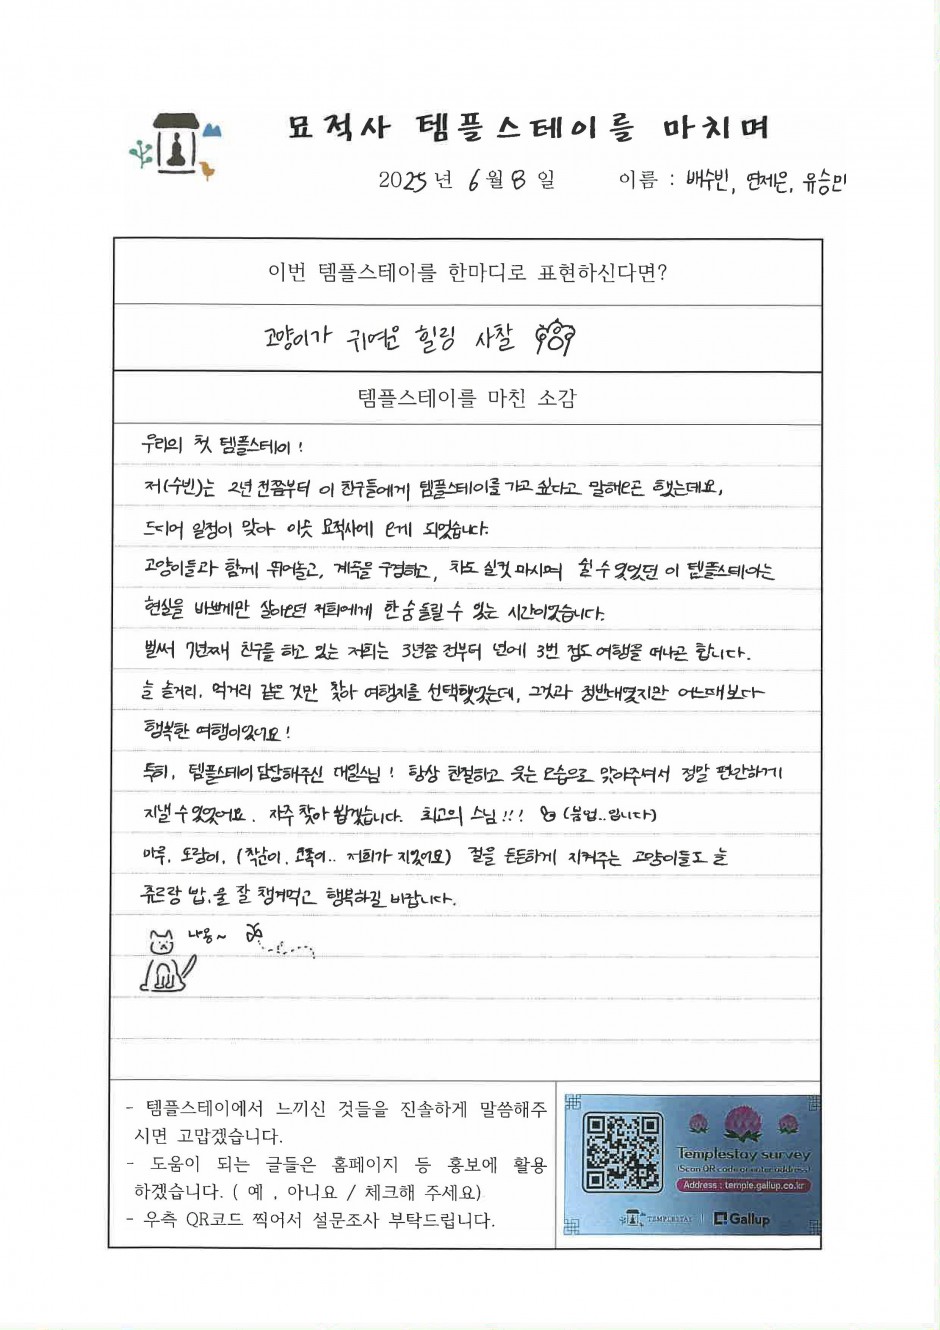 묘적사 템플스테이를 마치며
2025년 6월 8일 이름 : 배수빈, 연제은, 유승민
이번 템플스테이를 한마디로 표현하신다면?
고양이가 귀여운 힐링 사찰
템플스테이를 마친 소감
우리의 첫 템플스테이!
저(수빈)는 2년 전쯤부터 이 친구들에게 템플스테이를 가고 싶다고 말해오곤 했는데요,
드디어 일정이 맞아 이곳 묘적사에 오게 되었습니다.
고양이들과 함께 뛰어놀고, 계곡을 구경하고, 차도 실컷 마시며 쉴 수 있었던 이 템플스테이는
현실을 바쁘게만 살아오던 저희에게 한 숨 돌릴 수 있는 시간이었습니다.
벌써 7년째 친구를 하고 있는 저희는 3년쯤 전부터 년에 3번 정도 여행을 떠나곤 합니다.
늘 놀거리, 먹거리 같은 것만 찾아 여행지를 선택했었는데, 그것과 정반대였지만 어느때보다
행복한 여행이었어요!
특히, 템플스테이 담당해주신 대일스님! 항상 친절하고 웃는 모습으로 맞아주셔서 정말 편안하게
지낼 수 있었어요. 자주 찾아 뵙겠습니다. 최고의 스님!!! (붐업..입니다)
마루, 도랑이, (착순이, 코쪽이.. 저희가 지었어요) 절을 든든하게 지켜주는 고양이들도 늘
츄르랑 밥.을 잘 챙겨먹고 행복하길 바랍니다.
냐옹~
- 템플스테이에서 느끼신 것들을 진솔하게 말씀해주
시면 고맙겠습니다.
- 도움이 되는 글들은 홈페이지 등 홍보에 활용
하겠습니다. ( 예 , 아니요 / 체크해 주세요)
- 우측 QR코드 찍어서 설문조사 부탁드립니다.
Templestay survey
(Scan QR code or enter address)
Address : temple.gallup.co.kr
TEMPLESTAY | Gallup